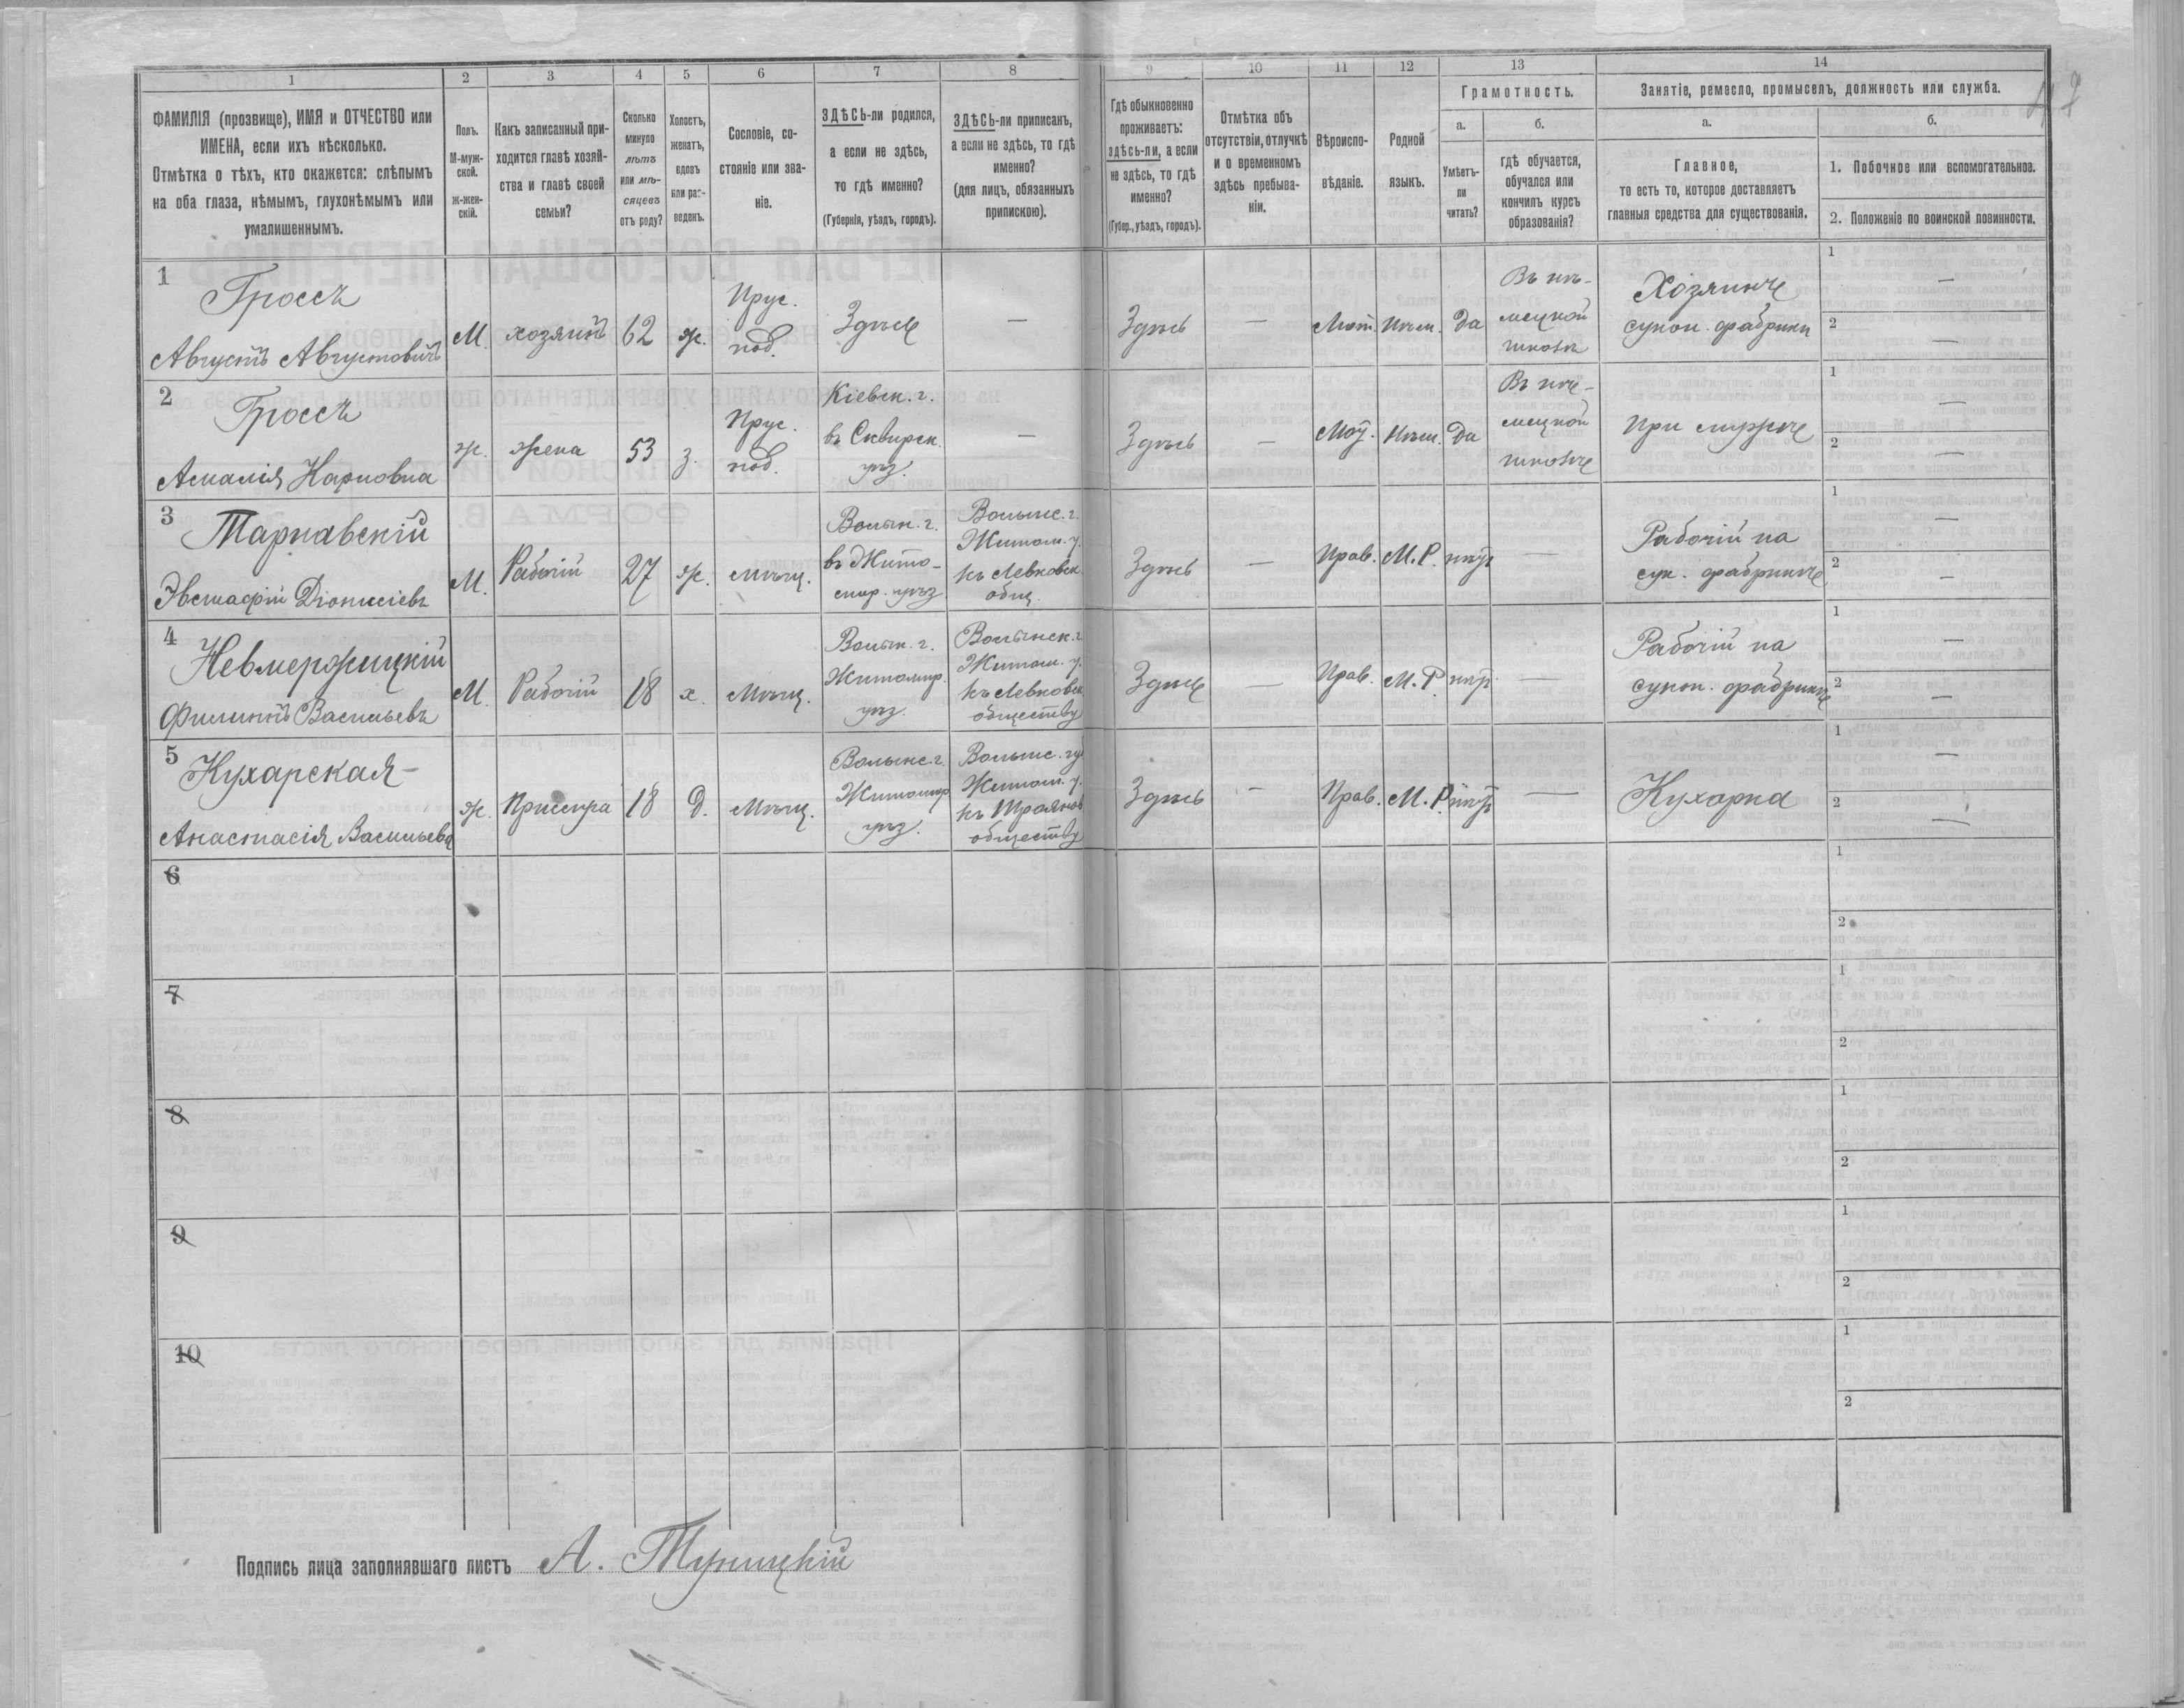 1 2 3 4 5 6 7 8 9 10 11 12 13 14
ФАМИЛІЯ (прозвище), ИМЯ и ОТЧЕСТВО или
ИМЕНА, если ихъ нѣсколько.
Отмѣтка о тѣхъ, кто окажется: слѣпымъ
на оба глаза, нѣмымъ, глухонѣмымъ или
умалишеннымъ.
Полъ.
М-муж-
ской.
Ж-жен-
скій.
Какъ записанный при-
ходится главѣ хозяй-
ства и главѣ своей
семьи?
Сколько
минуло
лѣтъ
или мѣ-
сяцевъ
отъ роду?
Холостъ,
женатъ,
вдовъ
или раз-
веденъ.
Сословіе, со-
стояніе или зва-
ніе.
ЗДѢСЬ-ли родился,
а если не здѣсь,
то гдѣ именно?
(Губернія, уѣздъ, городъ).
ЗДѢСЬ-ли приписанъ,
а если не здѣсь, то гдѣ
именно?
(для лицъ, обязанныхъ
припискою).
Гдѣ обыкновенно
проживаетъ:
здѣсь-ли, а если
не здѣсь, то гдѣ
именно?
(Губер., уѣздъ, городъ).
Отмѣтка объ
отсутствіи, отлучкѣ
и о временномъ
здѣсь пребыва-
ніи.
Вѣроиспо-
вѣданіе.
Родной
языкъ.
Грамотность.
а.
Умѣетъ-
ли
читать?
б.
гдѣ обучается,
обучался или
кончилъ курсъ
образованія?
Занятіе, ремесло, промыселъ, должность или служба.
а.
Главное,
то есть то, которое доставляетъ
главныя средства для существованія.
б.
1. Побочное или вспомогательное.
2. Положеніе по воинской повинности.
1
Гроссъ
Августъ Августовичъ
М.
хозяинъ
62
ж.
Прус.
под.
Здѣсь
—
Здѣсь
—
Лют.
Нѣм.
Да
Въ нѣ-
мецкой
школѣ
Хозяинъ
сукон. фабрики
1 —
2 —
2
Гроссъ
Амалія Карловна
ж.
жена
53
з.
Прус.
под.
Кіевск. г.
въ Сквирск.
уѣз.
—
Здѣсь
—
Лют.
Нѣм.
Да
Въ нѣ-
мецкой
школѣ
При мужѣ
1 —
2 —
3
Тарнавскій
Эвстафій Діонисіевъ
М.
Рабочій
27
ж.
мѣщ.
Волын. г.
въ Жито-
мир. уѣз
Волынс. г.
Житом. у.
къ Левковск.
общ.
Здѣсь
—
Прав.
М. Р.
нѣт
—
Рабочій на
сук. фабрикѣ
1 —
2 —
4
Невмержицкій
Филиппъ Васильевъ
М.
Рабочій
18
х.
Мѣщ.
Волын. г.
Житомир.
уѣз.
Волынск. г
Житом. у.
къ Левковск
обществу
Здѣсь
—
Прав.
М. Р.
нѣт.
—
Рабочій на
сукон. фабрикѣ
1 —
2 —
5
Кухарская
Анастасія Васильева
ж.
Прислуга
18
Д.
Мѣщ.
Волынс. г.
Житомир
уѣз.
Волынс. гу
Житом. у.
къ Троянов
обществу
Здѣсь
—
Прав.
М. Р.
нѣт
—
Кухарка
1 —
2 —
6
1
2
7
1
2
8
1
2
9
1
2
10
1
2
Подпись лица заполнявшаго листъ А. Туницкій